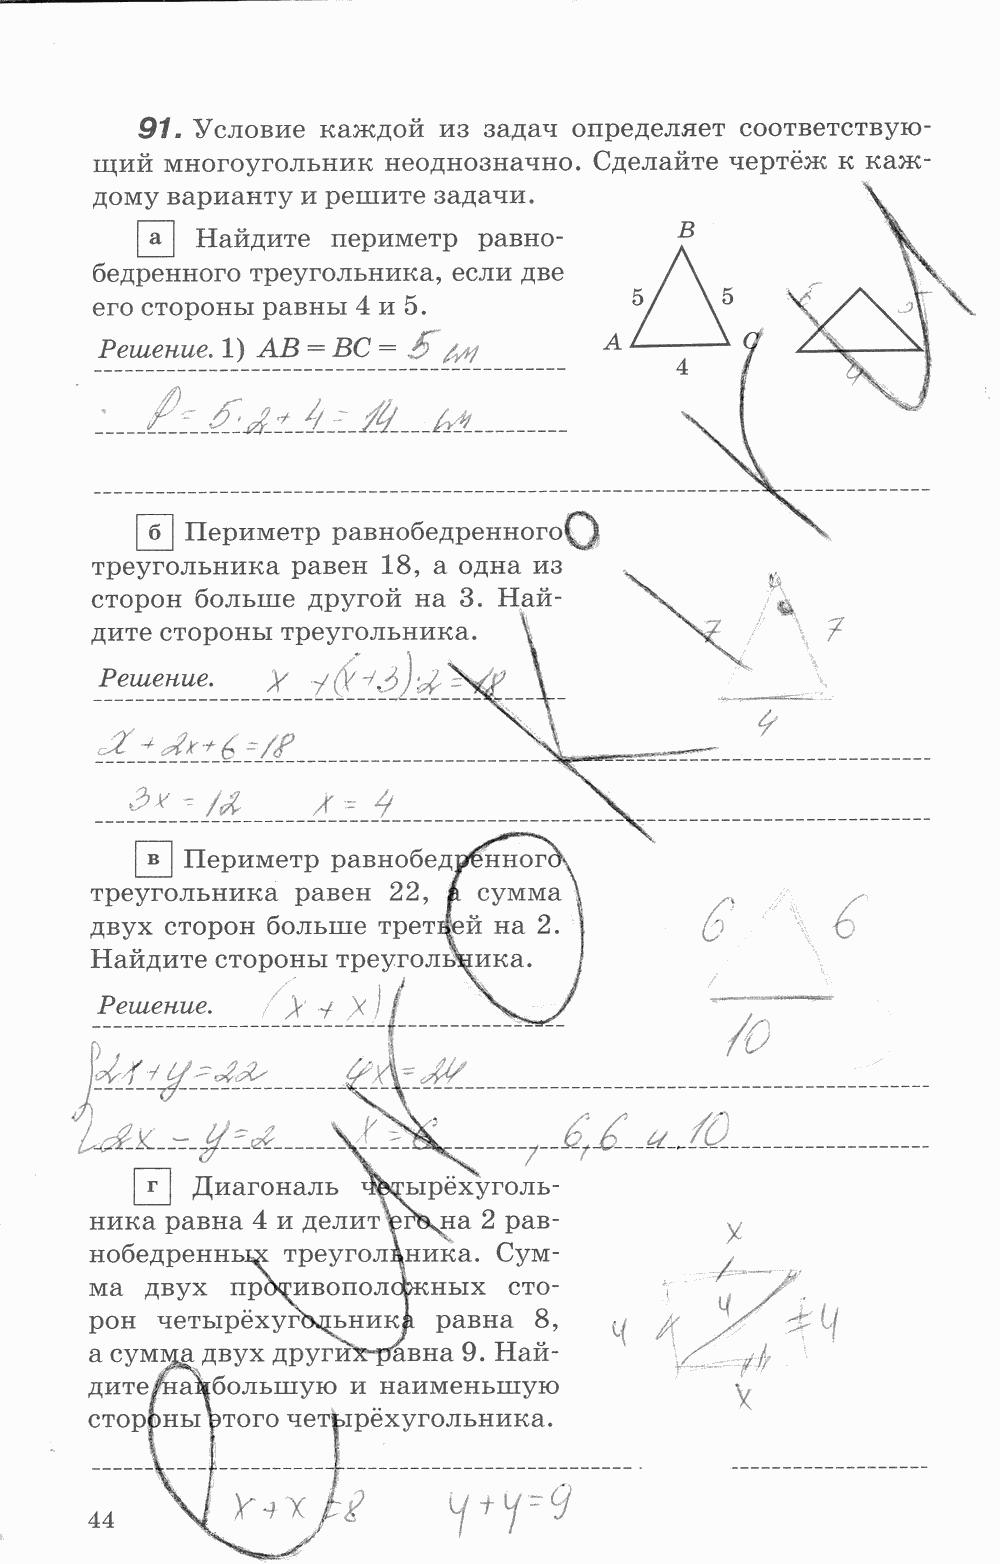 91. Условие каждой из задач определяет соответствую-
щий многоугольник неоднозначно. Сделайте чертёж к каж-
дому варианту и решите задачи.
а Найдите периметр равно-
бедренного треугольника, если две
его стороны равны 4 и 5.
B
5 5
A C
4
5 5
4
Решение. 1) AB = BC = 5 см
P = 5·2 + 4 = 14 см
б Периметр равнобедренного
треугольника равен 18, а одна из
сторон больше другой на 3. Най-
дите стороны треугольника.
7 7
4
Решение. x + (x+3)·2 = 18
x + 2x + 6 = 18
3x = 12 x = 4
в Периметр равнобедренного
треугольника равен 22, а сумма
двух сторон больше третьей на 2.
Найдите стороны треугольника.
6 6
10
Решение. (x + x)
2x + y = 22 4x = 24
2x − y = 2 x = 6 , 6,6 и 10
г Диагональ четырёхуголь-
ника равна 4 и делит его на 2 рав-
нобедренных треугольника. Сум-
ма двух противоположных сто-
рон четырёхугольника равна 8,
а сумма двух других равна 9. Най-
дите наибольшую и наименьшую
стороны этого четырёхугольника.
x
4 4 4
x
x + x = 8 y + y = 9
44